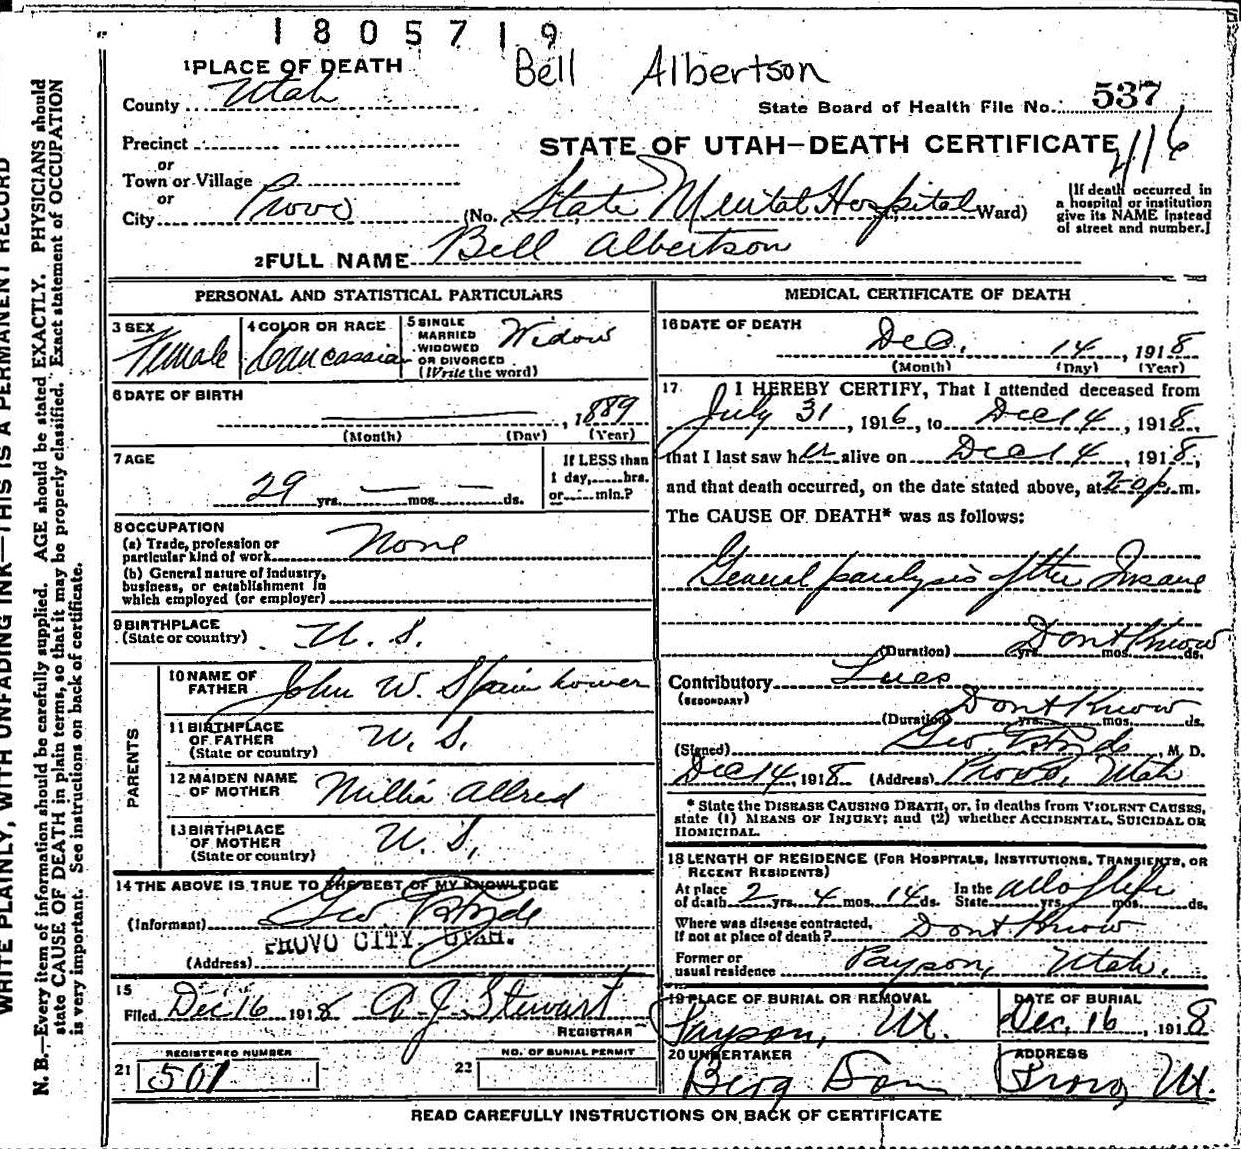 1805719
Bell Albertson
1 PLACE OF DEATH
County Utah
State Board of Health File No. 537
Precinct
or
Town or Village
or
City Provo
STATE OF UTAH—DEATH CERTIFICATE
416
(No. State Mental Hospital Ward)
[If death occurred in
a hospital or institution
give its NAME instead
of street and number.]
2 FULL NAME Bell Albertson
PERSONAL AND STATISTICAL PARTICULARS
3 SEX
Female
4 COLOR OR RACE
Caucassian
5 SINGLE
MARRIED
WIDOWED
OR DIVORCED
(Write the word)
Widow
6 DATE OF BIRTH
, 1889
(Month) (Day) (Year)
7 AGE
29 yrs. — mos. — ds.
If LESS than
1 day, hrs.
or min.?
8 OCCUPATION
(a) Trade, profession or
particular kind of work None
(b) General nature of industry,
business, or establishment in
which employed (or employer)
9 BIRTHPLACE
(State or country) U. S.
PARENTS
10 NAME OF
FATHER John W. Spainhower
11 BIRTHPLACE
OF FATHER
(State or country) U. S.
12 MAIDEN NAME
OF MOTHER Millia Allred
13 BIRTHPLACE
OF MOTHER
(State or country) U. S.
14 THE ABOVE IS TRUE TO THE BEST OF MY KNOWLEDGE
(Informant) Geo
PROVO CITY, UTAH.
(Address)
15
Filed Dec 16 1918 A J Stewart
REGISTRAR
REGISTERED NUMBER
21 501
NO. OF BURIAL PERMIT
22
MEDICAL CERTIFICATE OF DEATH
16 DATE OF DEATH
Dec. 14, 1918
(Month) (Day) (Year)
17 I HEREBY CERTIFY, That I attended deceased from
July 31, 1916, to Dec 14, 1918,
that I last saw her alive on Dec 14, 1918,
and that death occurred, on the date stated above, at 2-0 p. m.
The CAUSE OF DEATH* was as follows:
General paralysis of the Insane
Dont Know
(Duration) yrs. mos. ds.
Contributory Lues
(SECONDARY)
Dont Know
(Duration) yrs. mos. ds.
(Signed) Geo , M. D.
Dec 14, 1918 (Address) Provo, Utah
* State the DISEASE CAUSING DEATH, or, in deaths from VIOLENT CAUSES,
state (1) MEANS OF INJURY; and (2) whether ACCIDENTAL, SUICIDAL OR
HOMICIDAL.
18 LENGTH OF RESIDENCE (FOR HOSPITALS, INSTITUTIONS, TRANSIENTS, OR
RECENT RESIDENTS)
At place
of death 2 yrs. 4 mos. 14 ds.
In the
State all of life yrs. mos. ds.
Where was disease contracted,
if not at place of death? Dont Know
Former or
usual residence Payson, Utah.
19 PLACE OF BURIAL OR REMOVAL
Payson, Ut.
DATE OF BURIAL
Dec, 16, 1918
20 UNDERTAKER
Berg Son
ADDRESS
Provo, Ut.
READ CAREFULLY INSTRUCTIONS ON BACK OF CERTIFICATE
WRITE PLAINLY, WITH UNFADING INK—THIS IS A PERMANENT RECORD
N. B.—Every item of information should be carefully supplied. AGE should be stated EXACTLY. PHYSICIANS should
state CAUSE OF DEATH in plain terms, so that it may be properly classified. Exact statement of OCCUPATION
is very important. See instructions on back of certificate.